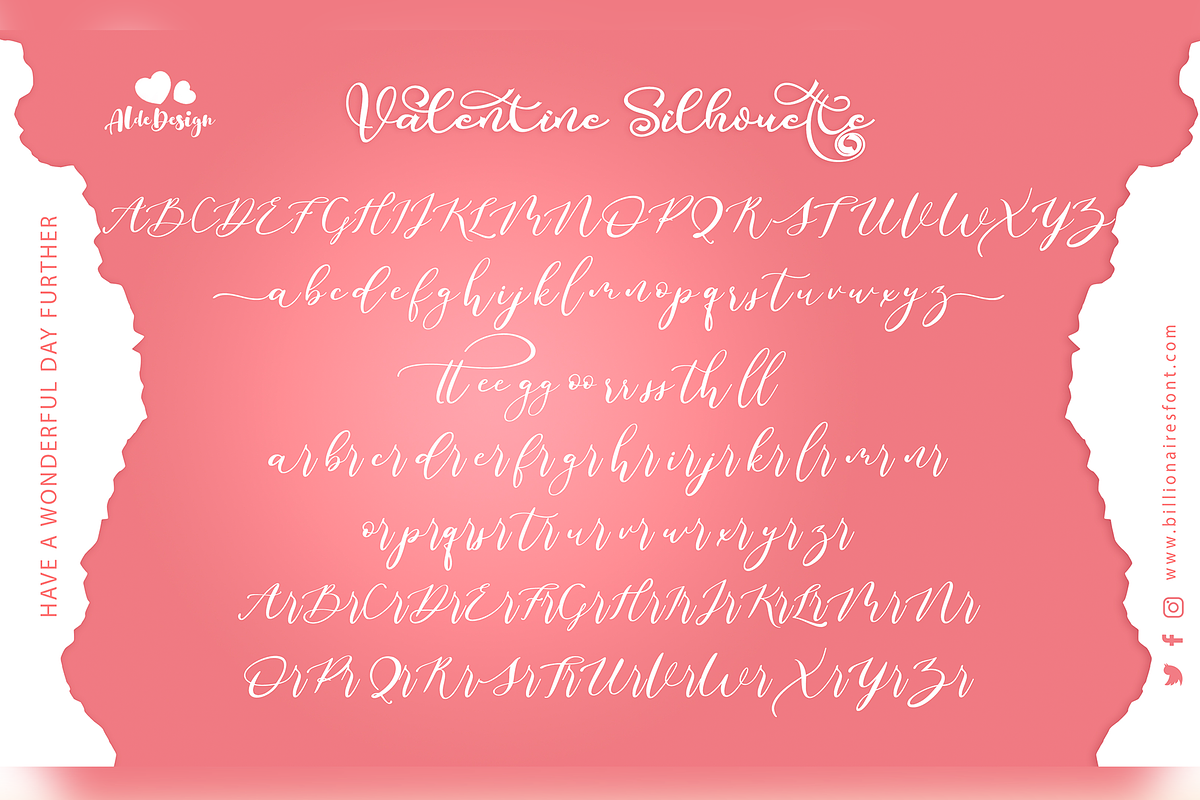 AldeDesign
Valentine Silhouette
ABCDEFGHIJKLMNOPQRSTUVWXYZ
abcdefghijklmnopqrstuvwxyz
tt ee gg oo rr ss th ll
ar br cr dr er fr gr hr ir jr kr lr mr nr
or pr qr sr tr ur vr wr xr yr zr
Ar Br Cr Dr Er Fr Gr Hr Ir Jr Kr Lr Mr Nr
Or Pr Qr Rr Sr Tr Ur Vr Wr Xr Yr Zr
HAVE A WONDERFUL DAY FURTHER
www.billionairesfont.com